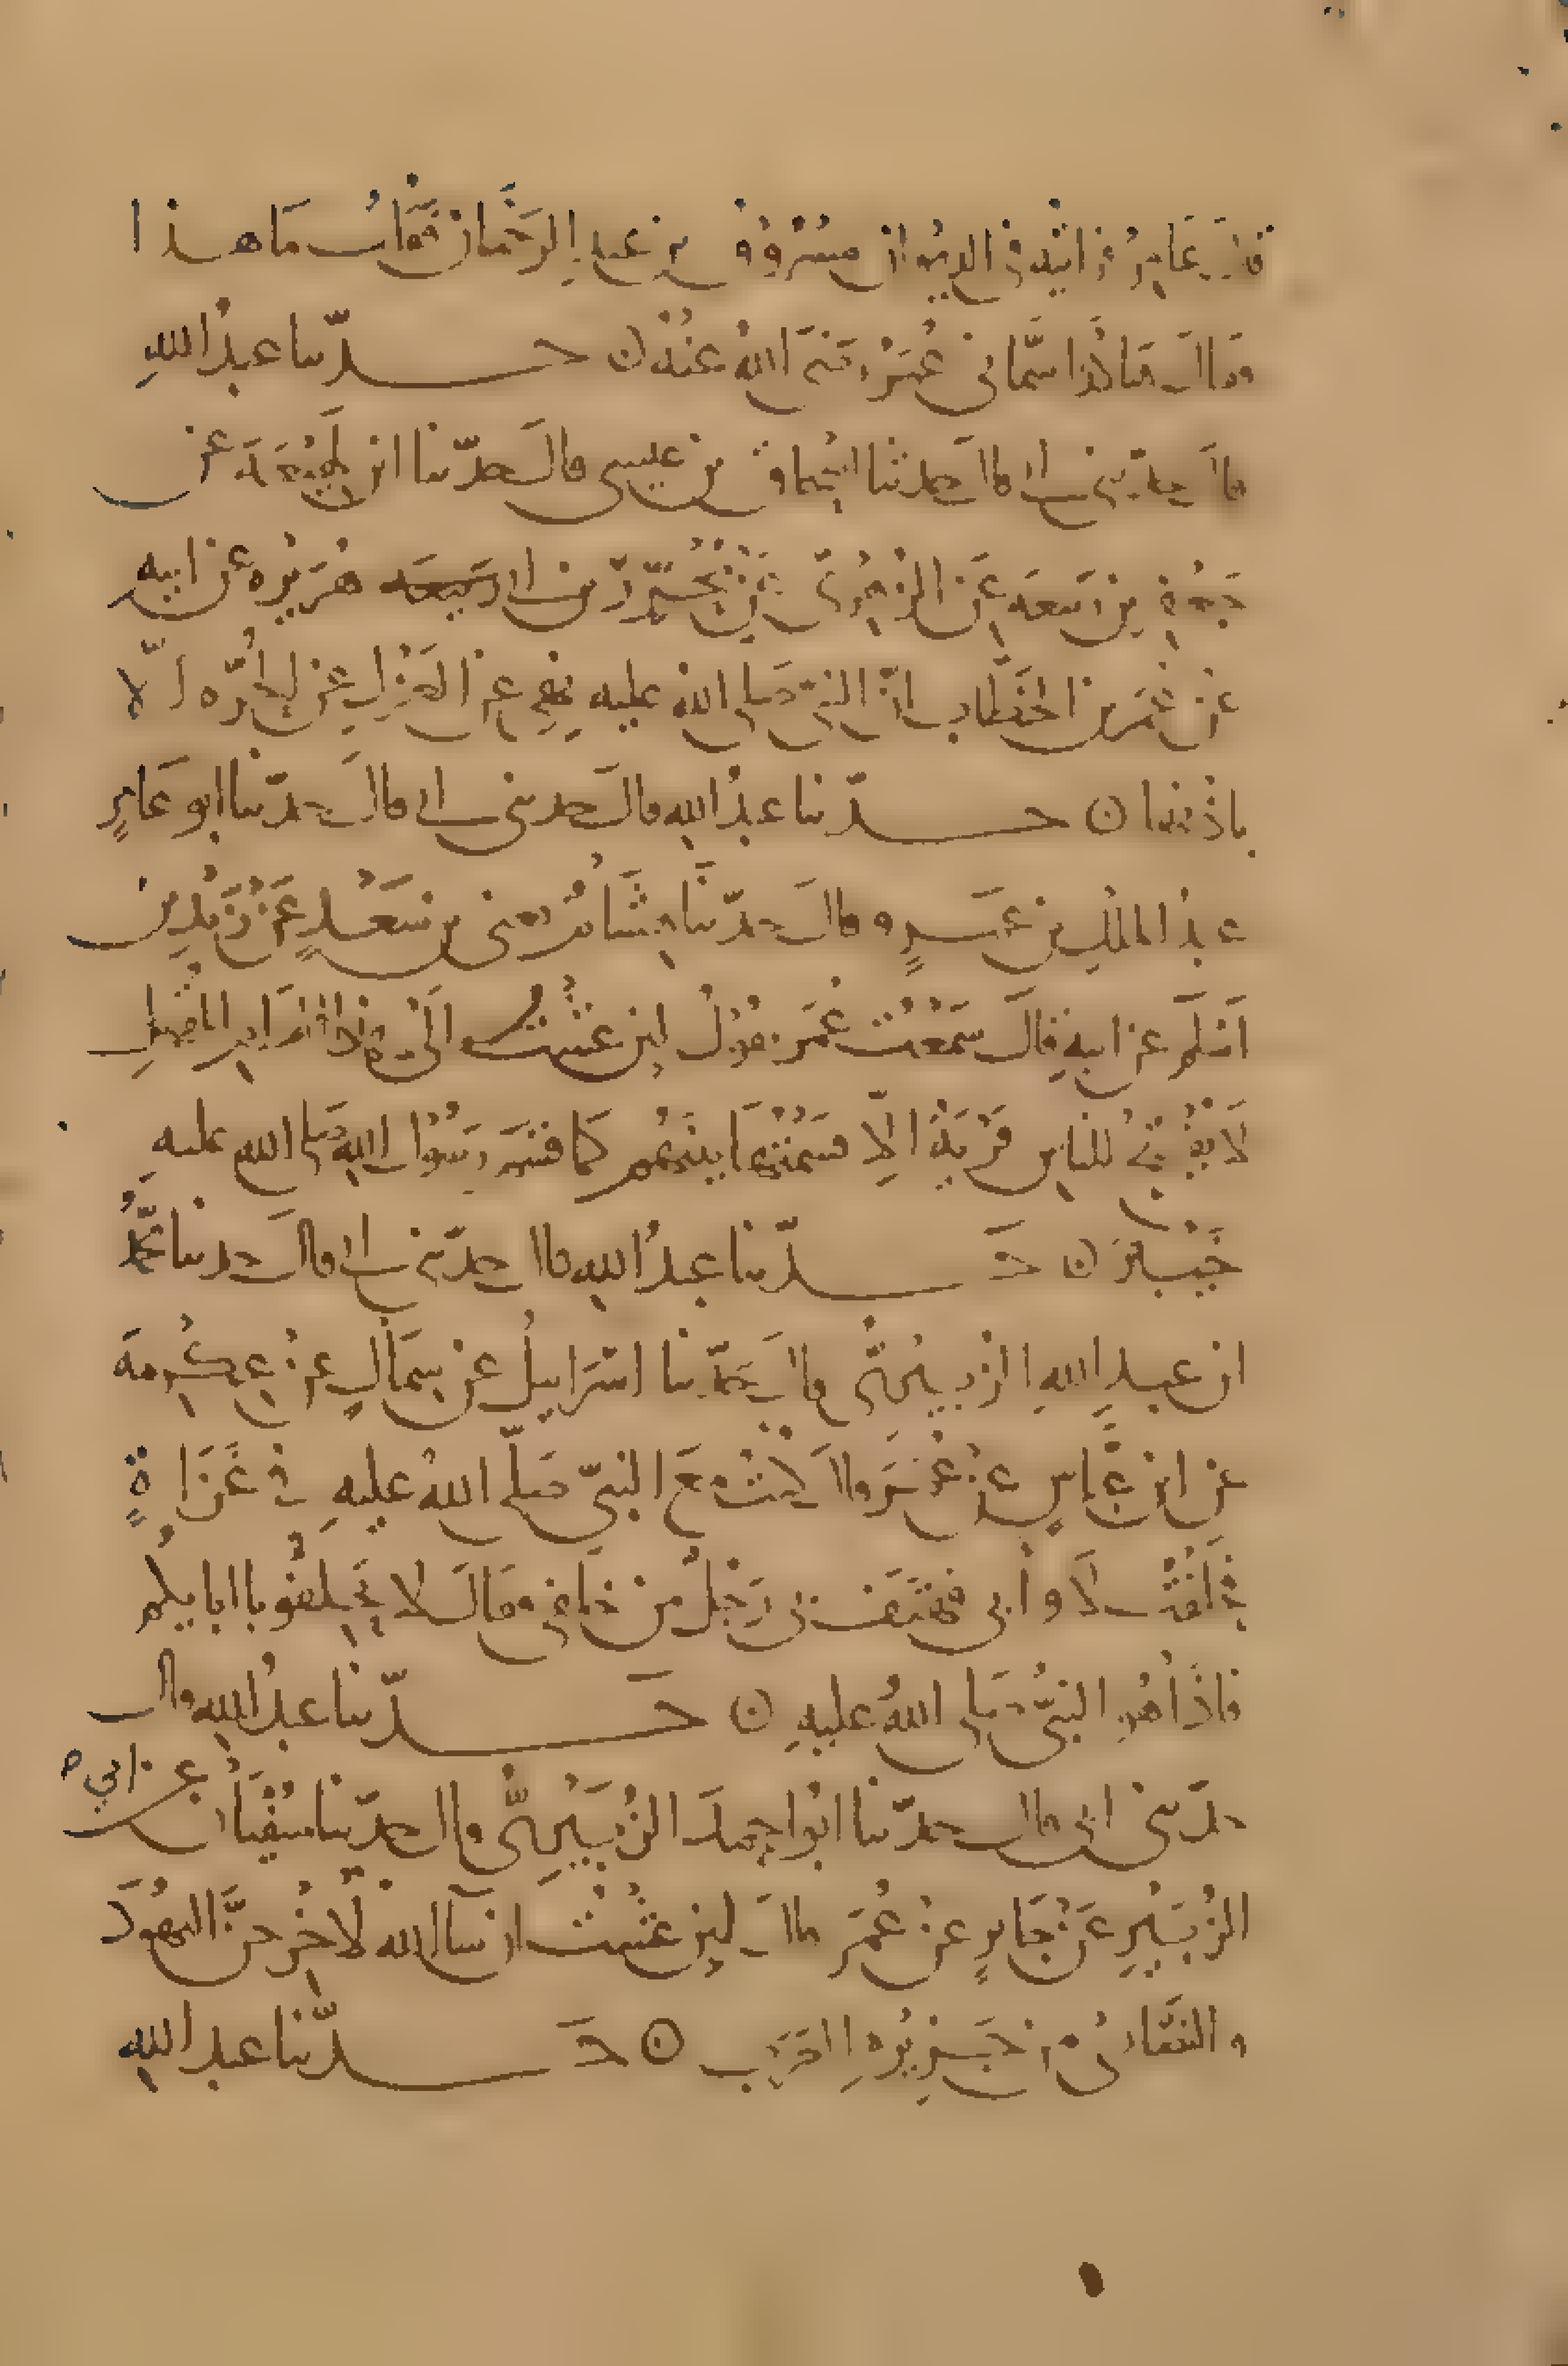 قال عامر فرايته في الديوان مسروق بن عبد الرحمان فقلت ما هذا
فقال هكذا سماني عمر رضي الله عنه ن حدثنا عبد الله
قال حدثني ابي قال حدثنا اسحاق بن عيسى قال حدثنا ابن لهيعة عن
جعفر بن ربيعة عن الزهري عن محرر بن ابي هريره عن ابيه
عن عمر بن الخطاب ان النبي صلى الله عليه نهى عن العزل عن الحره الا
باذنها ن حدثنا عبد الله قال حدثني ابي قال حدثنا ابو عامر
عبد الملك بن عمرو قال حدثنا هشام يعني بن سعد عن زيد بن
اسلم عن ابيه قال سمعت عمر يقول لين عشت الى هذا العام المقبل
لا يفتح للناس قرية الا قسمتها بينهم كما قسم رسول الله صلى الله عليه
خيبر ن حدثنا عبد الله قال حدثني ابي قال حدثنا محمد
ابن عبد الله الزبيري قال حدثنا اسراييل عن سماك عن عكرمة
عن ابن عباس عن عمر قال كنت مع النبي صلى الله عليه في غزاة
فحلفت لا وابي فهتف بي رجل من خلفي فقال لا تحلفو باابايكم
فاذا هو النبي صلى الله عليه ن حدثنا عبد الله قال
حدثني ابي قال حدثنا ابو احمد الزبيري قال حدثنا سفيان عن ابي
الزبير عن جابر عن عمر قال لين عشت ان شا الله لاخرجن اليهود
والنصارى من جزيره العرب ن حدثنا عبد الله